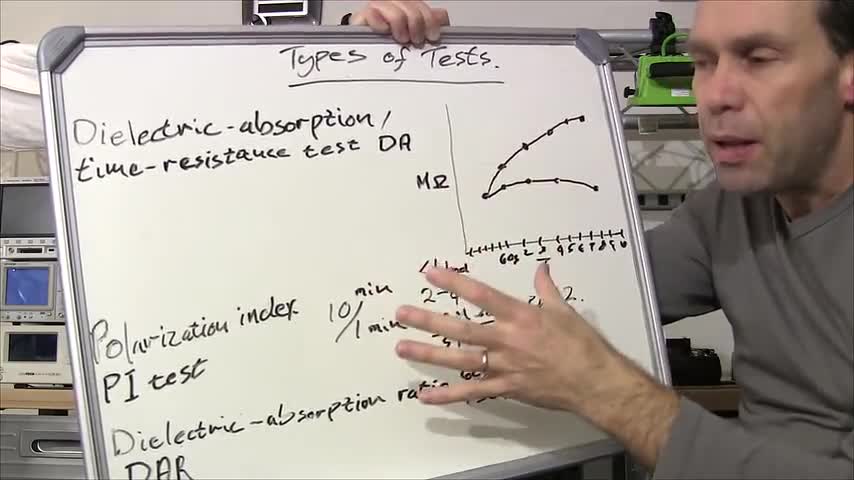 Types of Tests.
Dielectric-absorption/
time-resistance test DA
MΩ
60s 2 3 4 5 6 7 8 9 10
T
Polarization index
PI test
10/1 min
min
2-4
2.
Dielectric-absorption ratio
DAR